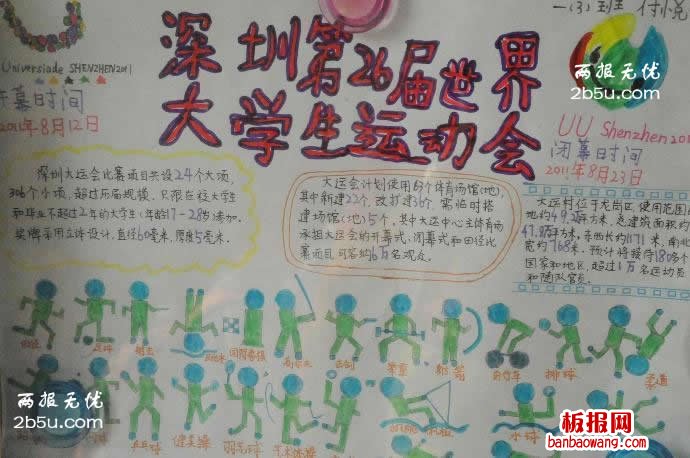 一(3)班 付悦
深圳第26届世界
大学生运动会
Universiade SHENZHEN2011
开幕时间
2011年8月12日
两报无忧
2b5u.com
UU Shenzhen2011
闭幕时间
2011年8月23日
深圳大运会比赛项目共设24个大项,
306个小项,超过历届规模。只限在校大学生
和毕业不超过2年的大学生(年龄17-28岁)参加。
奖牌采用立体设计,直径60毫米,厚度5毫米。
大运会计划使用63个体育场馆(地),
其中新建22个,改打建36个,需临时搭
建场馆(地)5个,其中大运中心主体育场
承担大运会的开幕式、闭幕式和田径比
赛项目可容纳6万名观众。
大运村位于龙岗区,使用范围
地约49.2万平方米,总建筑面积约
47.8万平方米,东西长约1171米,南北
宽约768米,预计将接待180多个
国家和地区,超过1万名运动员
和随队官员。
田径 足球 射击 跳水 国际象棋 高尔夫 击剑 举重 射箭 自行车 排球 柔道
乒乓球 健美操 羽毛球 艺术体操 帆板 水球
两报无忧
2b5u.com
板报网
banbaowang.com